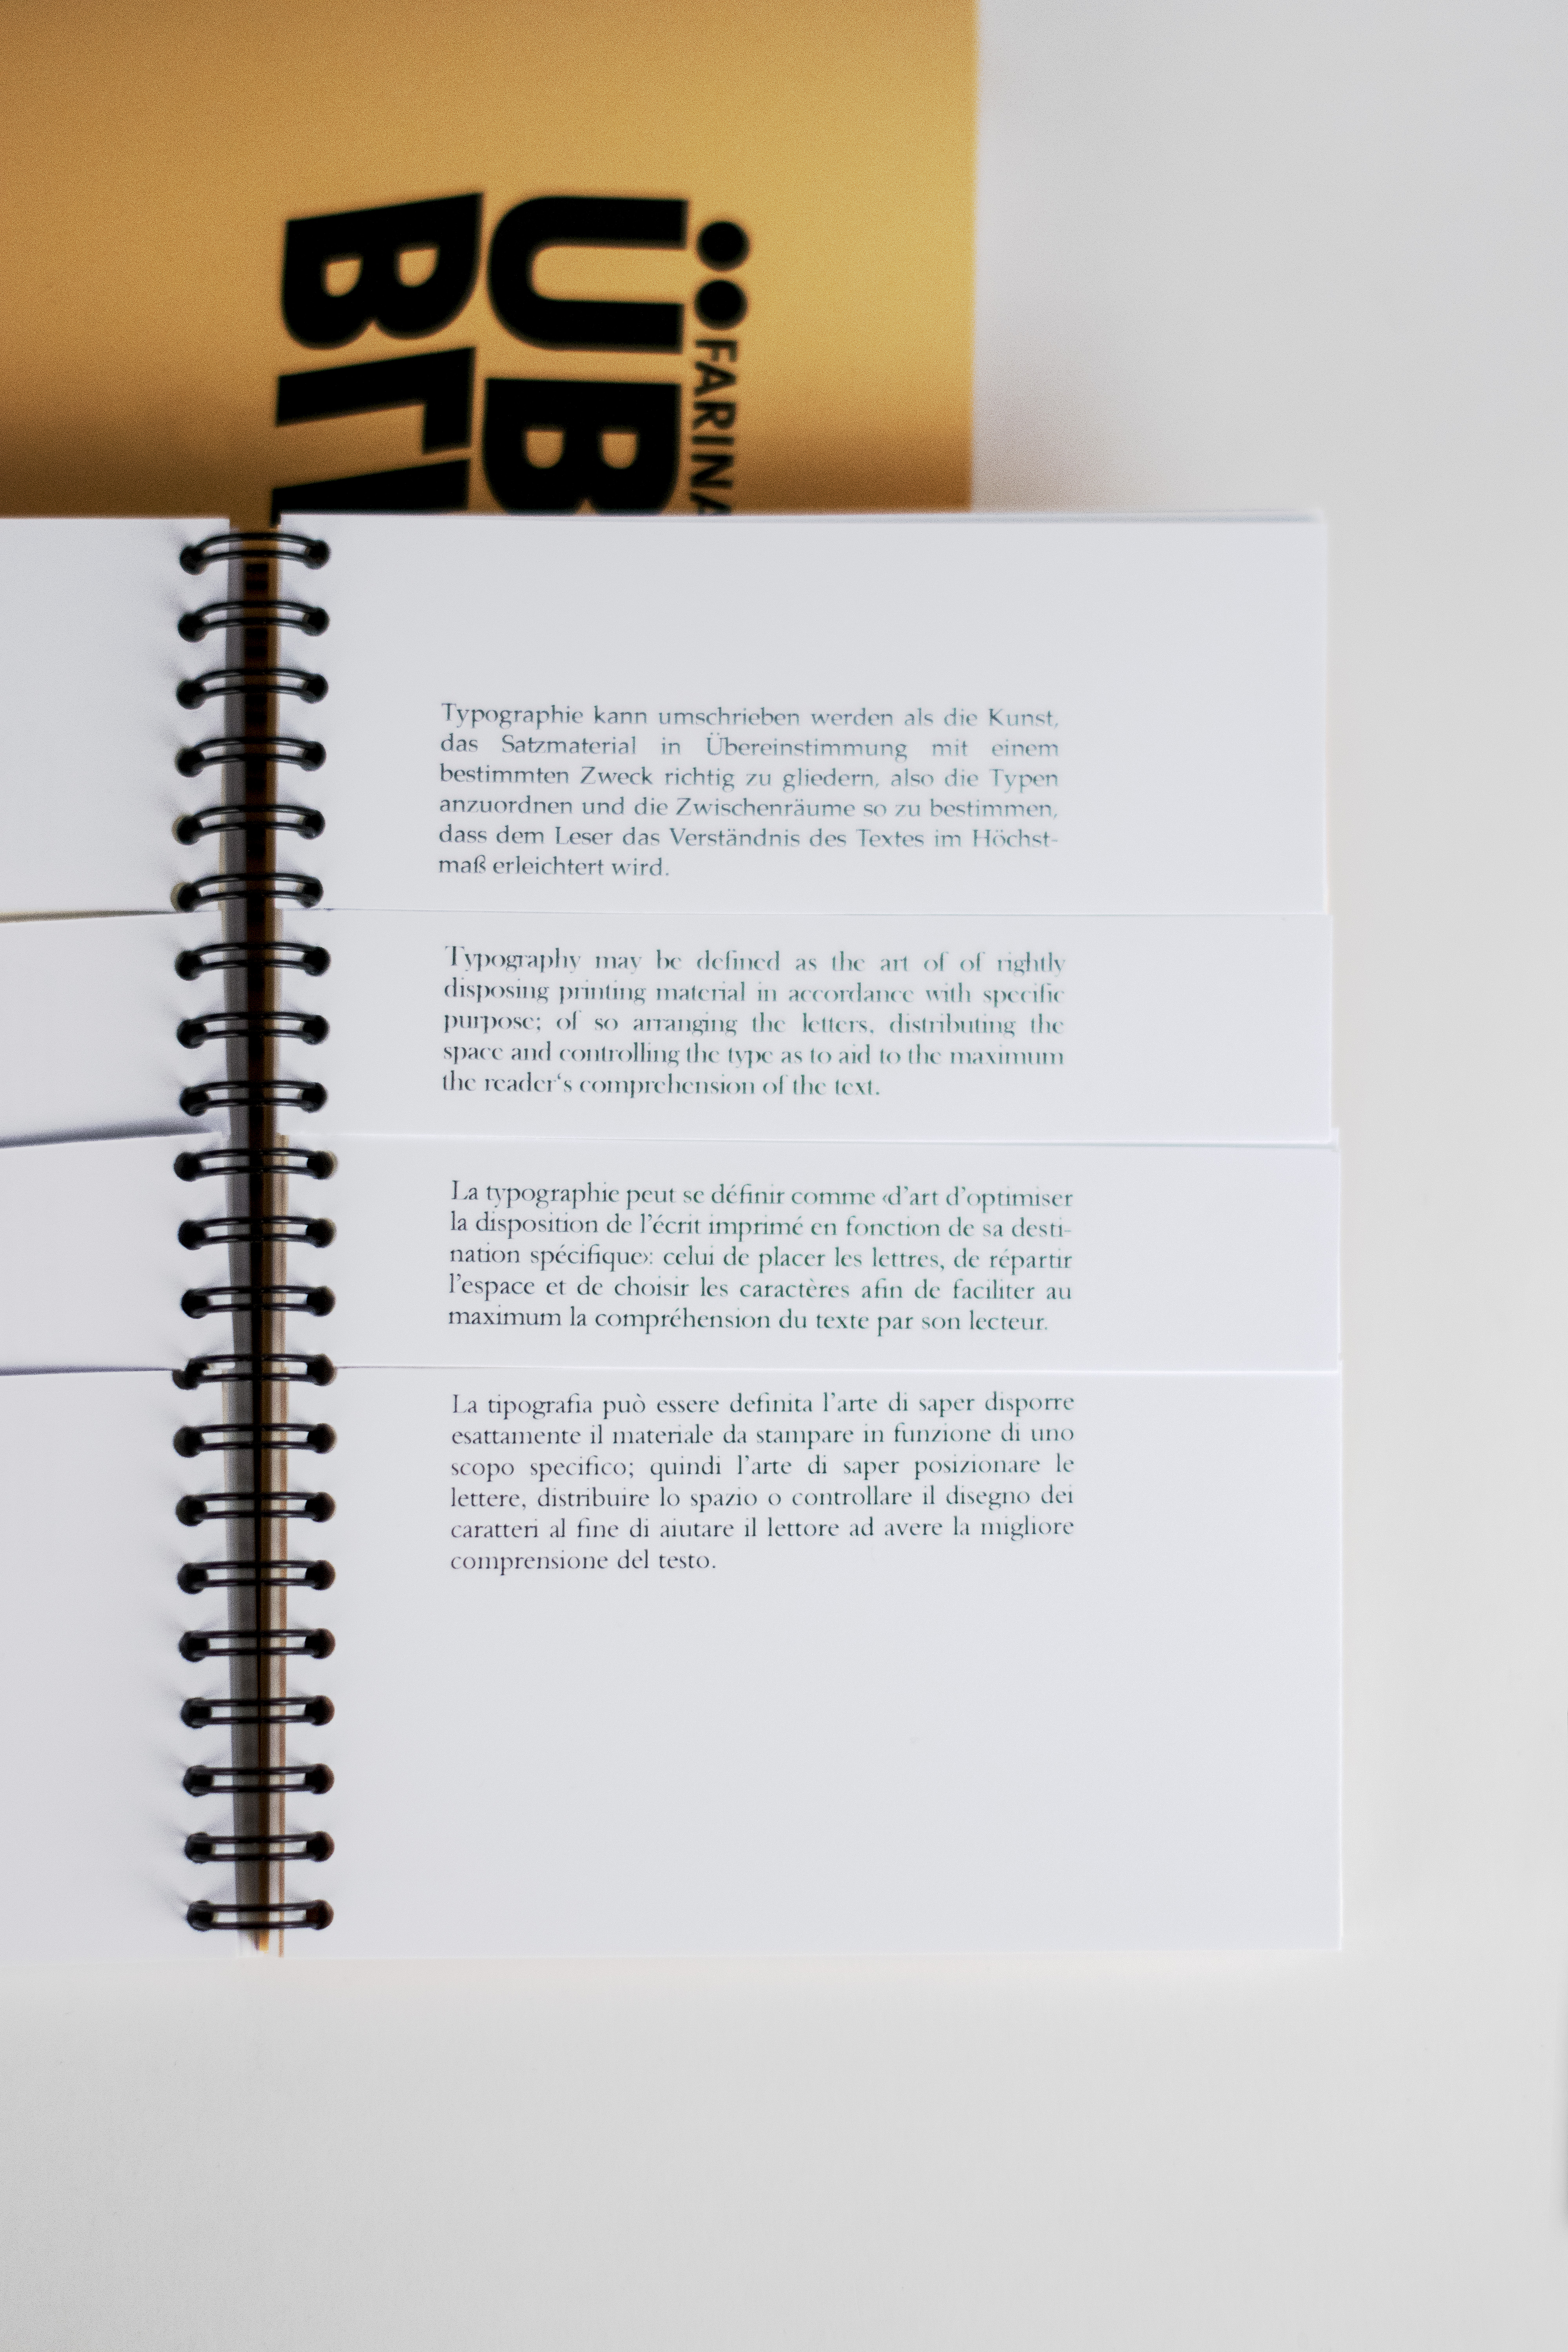 ÜB
FARINA
Typographie kann umschrieben werden als die Kunst,
das Satzmaterial in Übereinstimmung mit einem
bestimmten Zweck richtig zu gliedern, also die Typen
anzuordnen und die Zwischenräume so zu bestimmen,
dass dem Leser das Verständnis des Textes im Höchst-
maß erleichtert wird.
Typography may be defined as the art of of rightly
disposing printing material in accordance with specific
purpose; of so arranging the letters, distributing the
space and controlling the type as to aid to the maximum
the reader‘s comprehension of the text.
La typographie peut se définir comme ‹d’art d’optimiser
la disposition de l’écrit imprimé en fonction de sa desti-
nation spécifique›: celui de placer les lettres, de répartir
l’espace et de choisir les caractères afin de faciliter au
maximum la compréhension du texte par son lecteur.
La tipografia può essere definita l’arte di saper disporre
esattamente il materiale da stampare in funzione di uno
scopo specifico; quindi l’arte di saper posizionare le
lettere, distribuire lo spazio o controllare il disegno dei
caratteri al fine di aiutare il lettore ad avere la migliore
comprensione del testo.